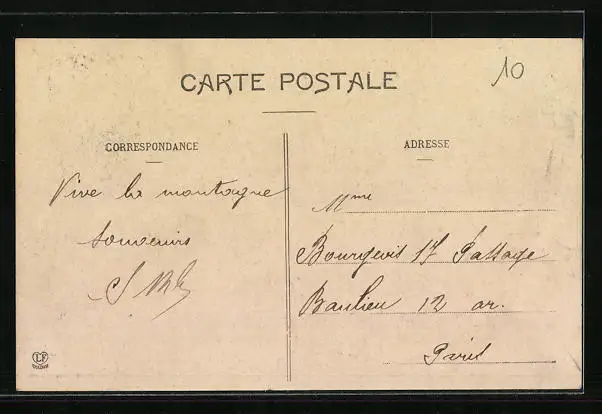 CARTE POSTALE
10
CORRESPONDANCE
Vive la montagne
souvenirs
ADRESSE
Mme
Bourgeois 17 Passage
Baulieu 12 ar.
Paris
LF